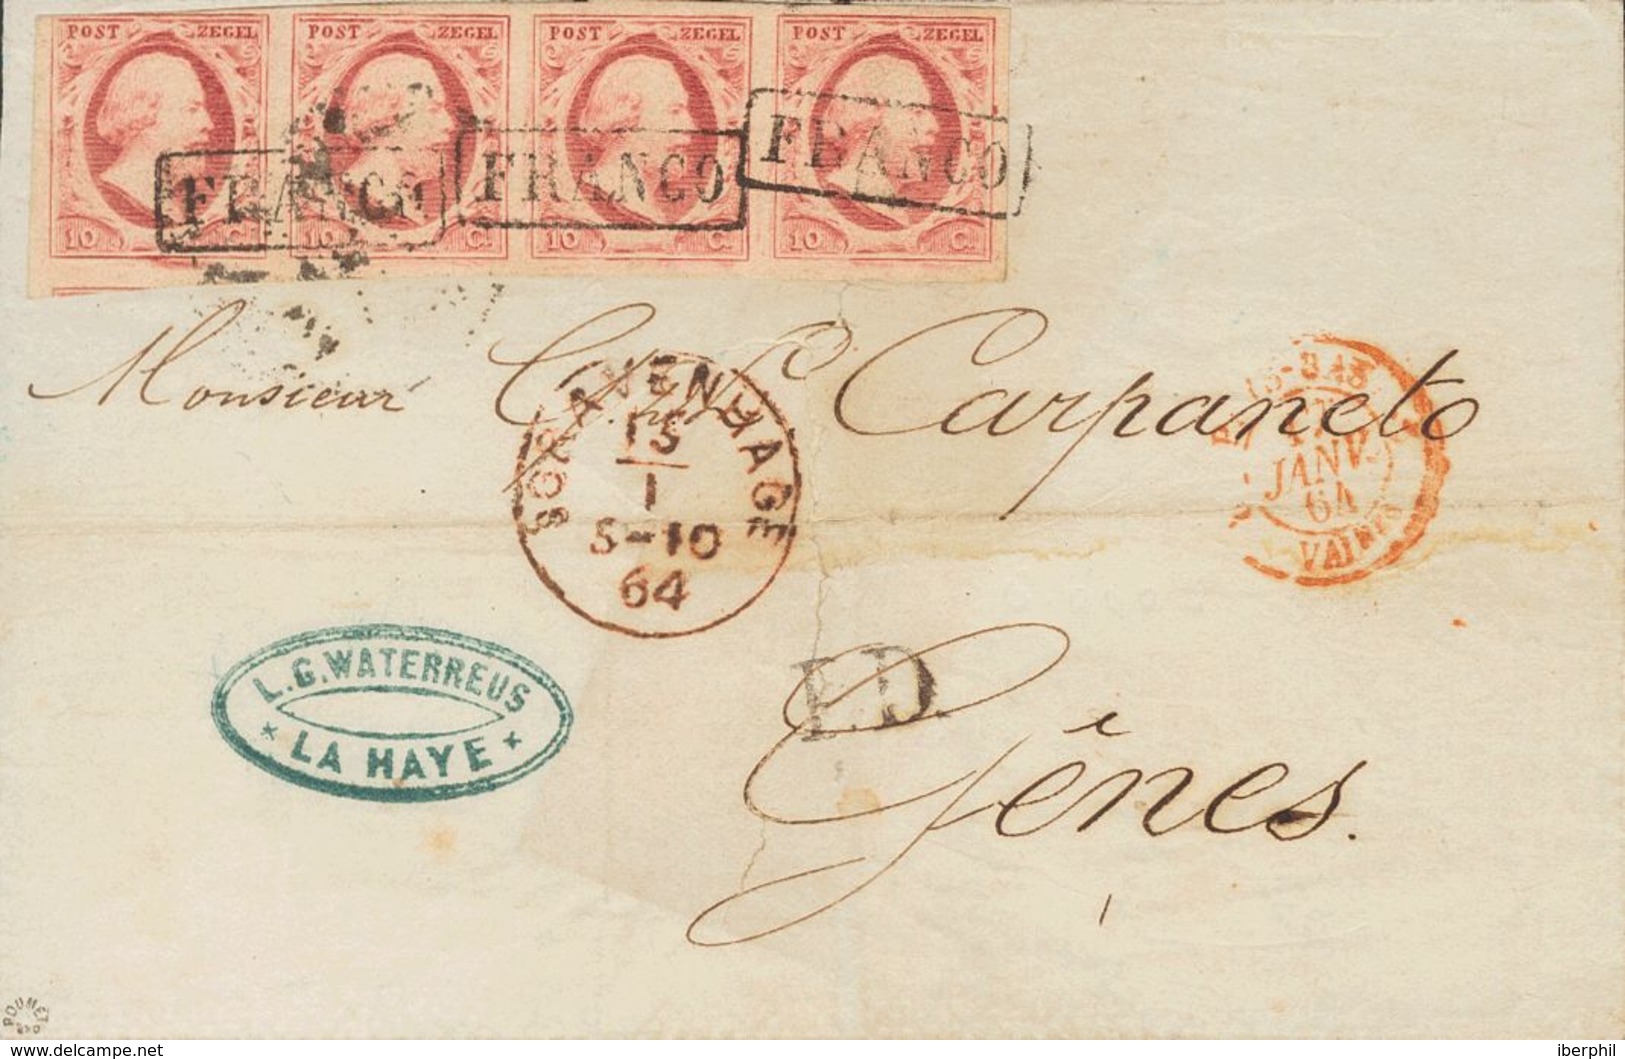 POST ZEGEL POST ZEGEL POST ZEGEL POST ZEGEL
FRANCO FRANCO FRANCO
10 C. 10 10 C. 10 C.
Monsieur Carpaneto
SGRAVENHAGE
15
1
5-10
64
JANV.
64
P.D.
L.G. WATERREUS
* LA HAYE *
Gênes.
www.delcampe.net
iberphil